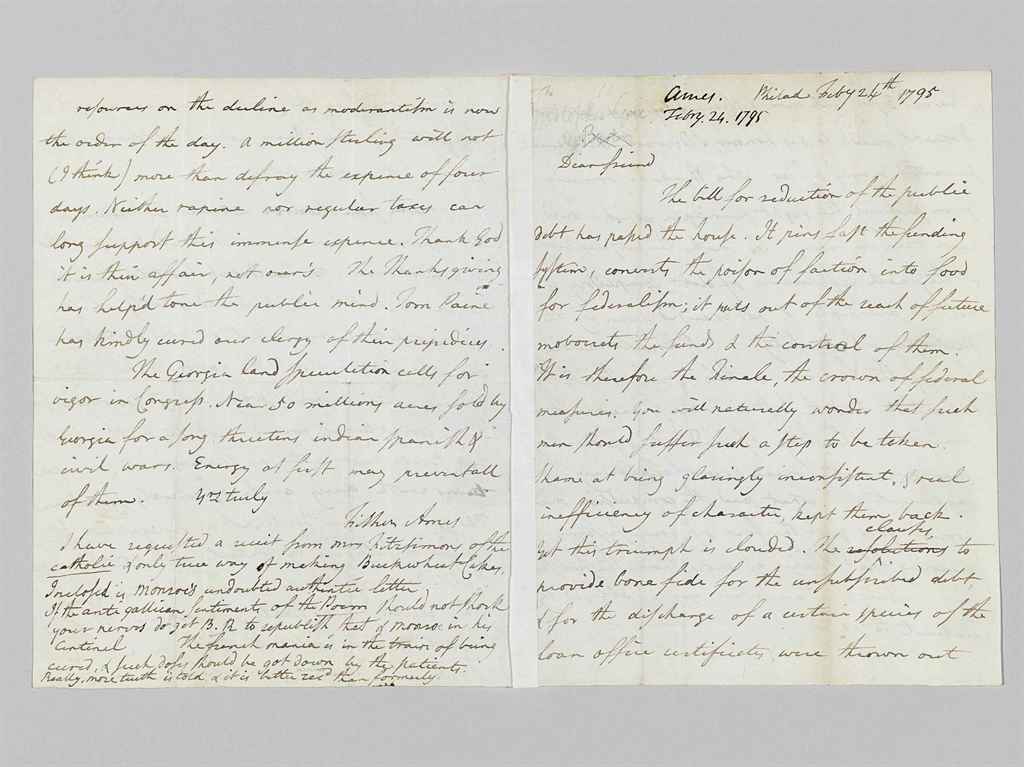 resources on the decline as moderantism is now
the order of the day. A million sterling will not
(I think) more than defray the expence of four
days. Neither rapine nor regular taxes can
long support this immense expence. Thank God
it is their affair, not our's The Thanksgiving
has help'd tone the public mind. Tom Paine
has kindly cured our clergy of their prejudices.
The Georgia land speculation calls for
vigor in Congress. Near 50 millions acres sold by
Georgia for a song threatens indian spanish &
civil wars. Energy at first may prevent all
of them. Yrs truly
Fisher Ames
I have requested a receit from Mrs Fitzsimon of the
catholic & only true way of making Buckwheat Cakes,
Inclosed is Monroe's undoubted authentic letter
If the anti gallican sentiments of the Poem should not shock
your nerves do get B. R to republish that of Monroe in his
Centinel The french mania is in the train of being
cured, & such doses should be got down by the patients.
Really, more truth is told & it is better rec'd than formerly.
Ames. Philad Feby 24th 1795
Febry. 24. 1795
Dear friend
The bill for reduction of the public
debt has passed the house. It pins fast the funding
system, converts the poison of faction into food
for federalism; it puts out of the reach of future
mobocrats the funds & the control of them.
It is therefore the Finale, the crown of federal
measures. You will naturally wonder that such
men should suffer such a step to be taken.
Shame at being glaringly inconsistent, & real
inefficiency of character, kept them back.
Yet this triumph is clouded. The resolutions clauses to
provide bona fide for the unsubscribed debt
& for the discharge of a certain species of the
loan office certificates were thrown out